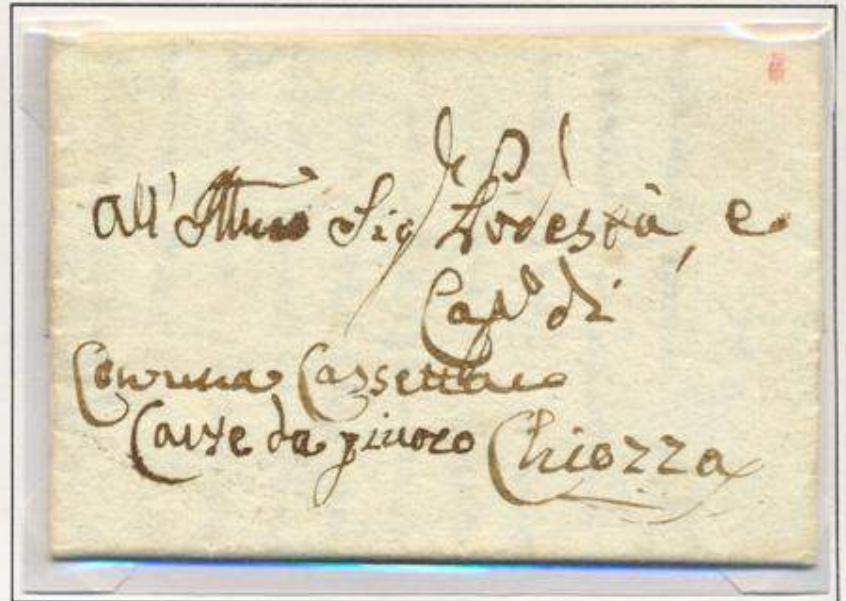 all' Illmo Sigr Podestà, e
Capo di
Con una Cassetta
Carte da giuoco Chiozza